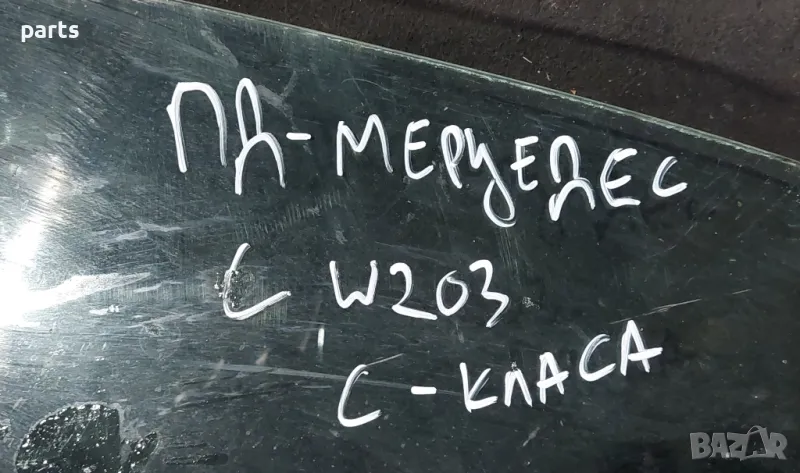 parts
ПД-МЕРЦЕДЕС
C W203
C-КЛАСА
BAZAR